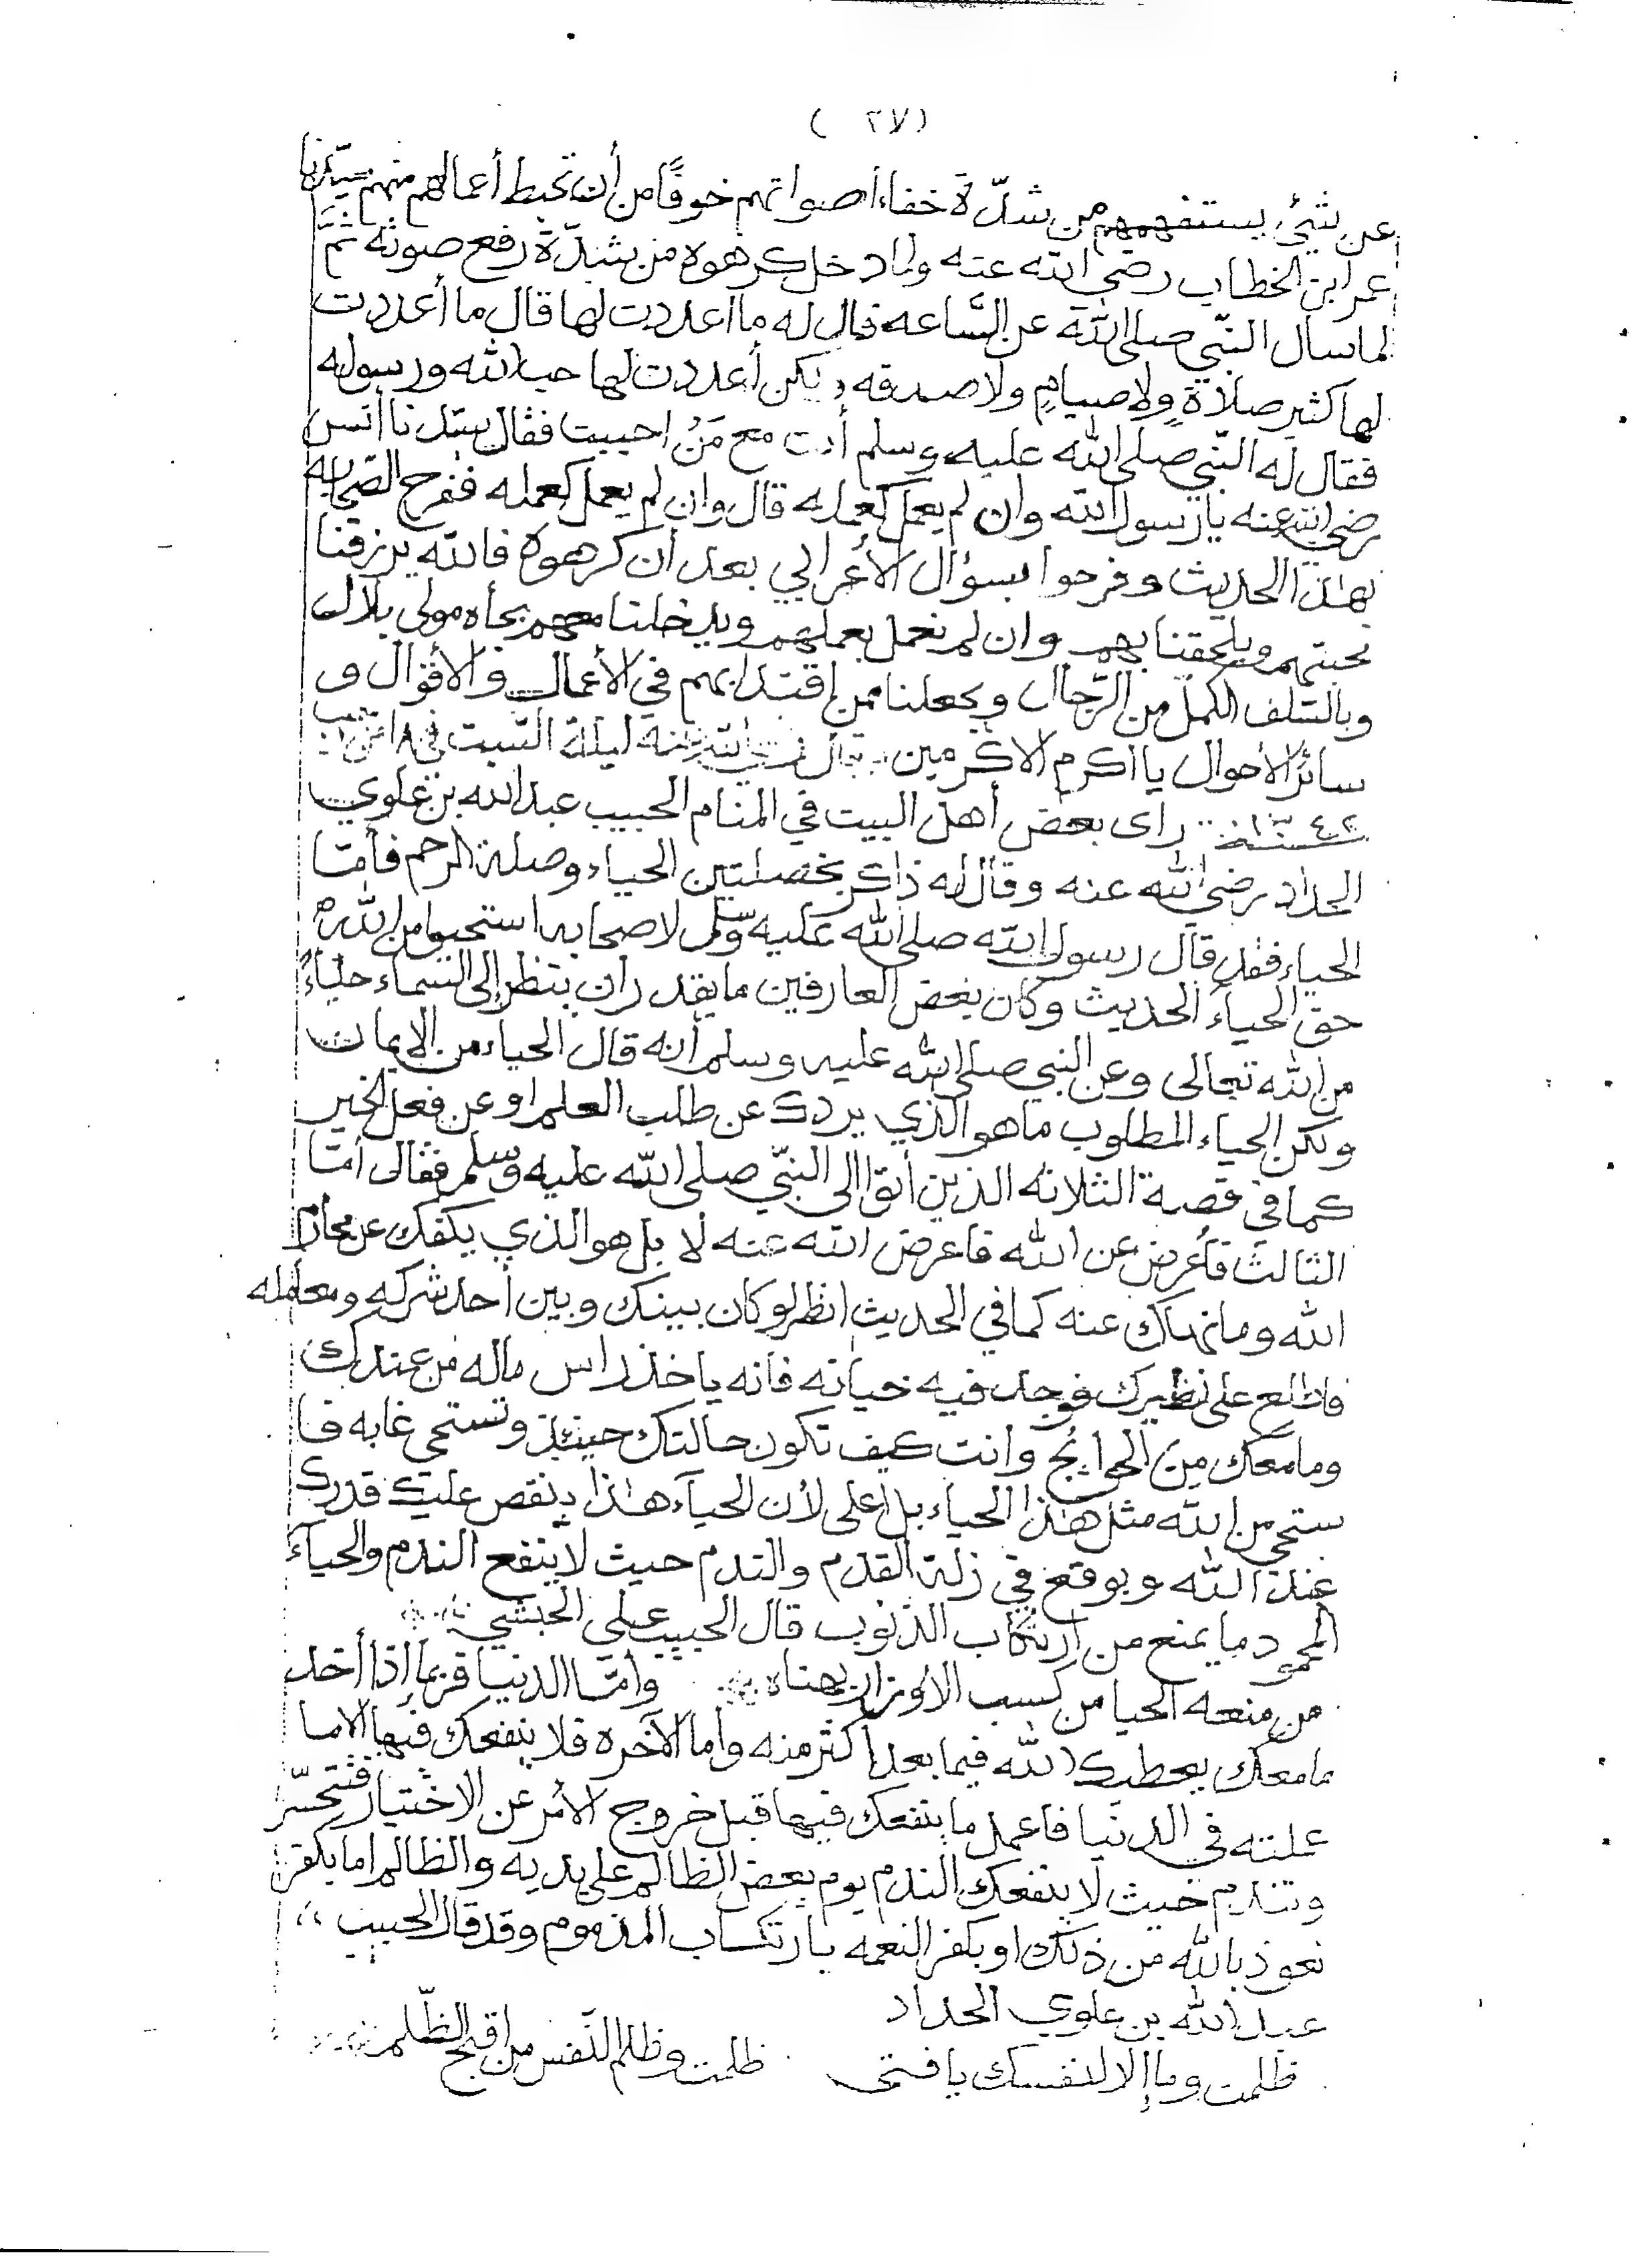 ( ٢٧ )
عن شيء يستفهمهم من شدّة خفاء أصواتهم خوفًا من أن تحبط أعمالهم منهم سيّدنا
عمر ابن الخطاب رضي الله عنه ولما دخل كرهوه من شدّة رفع صوته ثمَّ
لما سأل النبّي صلى الله عن السَّاعه قال له ما اعددت لها قال ما أعددت
لها كثير صلاةٍ ولا صيامٍ ولا صدقه ولكن أعددت لها حب الله ورسوله
فقال له النّبي صلى الله عليه وسلم أنت مع مَنْ احببت فقال سيّدنا أنس
رضي الله عنه يا رسول الله وان لم يعمل كعمله قال وان لم يعمل كعمله ففرح الصّحابه
بهذا الحديث وفرحوا بسؤال الأعرابي بعد أن كرهوه فالله يرزقنا
محبتهم ويلحقنا بهم وان لم نعمل بعملهم ويدخلنا معهم بجاه مولى بلال
وبالسّلف الكمل من الرّجال ويجعلنا ممن إقتدا بهم في الأعمال والأقوال و
سائر الأحوال يا اكرم الاكرمين الله عنه ليلة السّبت في ٨
رأى بعض أهل البيت في المنام الحبيب عبدالله بن علوي
الحداد رضي الله عنه وقال له ذاكر بخصلتين الحياء وصلة الرحم فأمّا
الحياء فقد قال رسول الله صلى الله عليه وسلّم لاصحابه استحيوا من الله
حق الحياء الحديث وكان بعض العارفين ما يقدر ان ينظر إلى السماء حياءً
من الله تعالى وعن النبي صلى الله عليه وسلم أنه قال الحياء من الايمان
ولكن الحياء المطلوب ما هو الذي يردك عن طلب العلم او عن فعل الخير
كما في قصة الثلاثه الذين أتوا الى النبّي صلى الله عليه وسلم فقال أمّا
الثالث فأعرض عن الله فاعرض الله عنه لا بل هو الذي يكفك عن محارم
الله وما نهاك عنه كما في الحديث انظر لو كان بينك وبين أحد شركه ومعامله
فاطلع على نظيرك فوجد فيه خيانه فانه ياخذ راس ماله من عندك
وما معك من الحوائج وانت كيف تكون حالتك حينئذ وتستحي غايه فا
ستحي من الله مثل هذا الحياء بل اعلى لأن الحياء هذا ينقص عليك قدرك
عند الله ويوقع في زلة القدم والندم حيث لا ينفع الندم والحياء
المحمود ما يمنع من ارتكاب الذنوب قال الحبيب علي الحبشي
من منعه الحيا من كسب الأوزار يهناه وأمّا الدنيا فربما إذا أخذ
ما معك يعطيك الله فيما بعد أكثر منه وأما الآخره فلا ينفعك فيها الا ما
عملته في الدنيا فاعمل ما ينفعك فيها قبل خروج الأمر عن الاختيار فتتحسّر
وتندم حيث لا ينفعك الندم يوم يعض الظالم على يديه والظالم اما بكفر
نعوذ بالله من ذلك او بكفر النعمه بارتكاب المذموم وقد قال الحبيب
عبد الله بن علوي الحداد
ظلمت وما إلا لنفسك يا فتى ظلمت وظلم النَفس من اقبح الظّلم